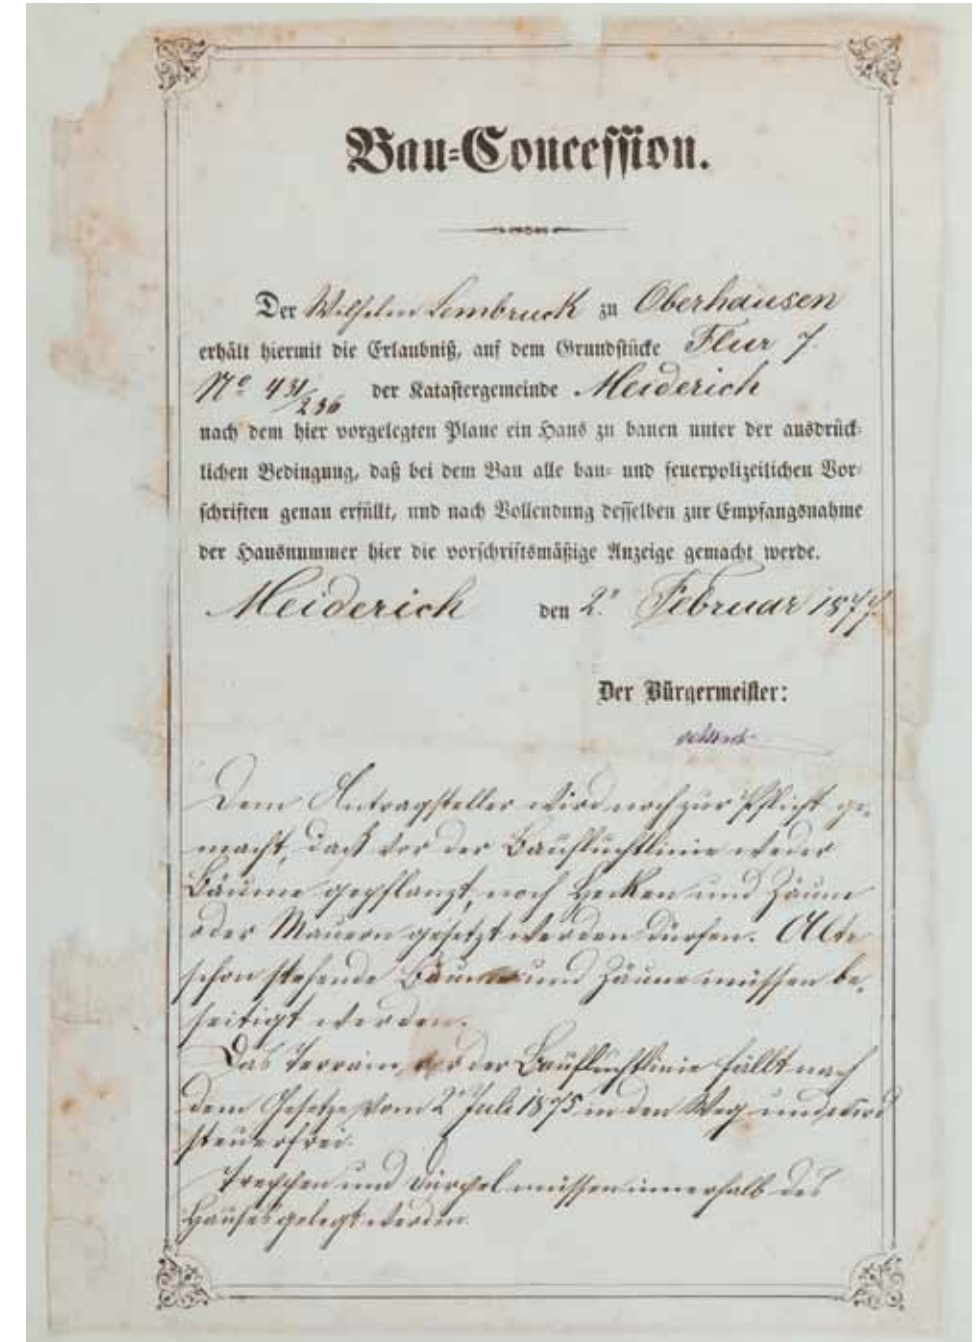 Bau-Concession.
Der Wilhelm Lembruck zu Oberhausen
erhält hiermit die Erlaubniß, auf dem Grundstücke Flur 7.
No 431/236 der Katastergemeinde Meiderich
nach dem hier vorgelegten Plane ein Haus zu bauen unter der ausdrück-
lichen Bedingung, daß bei dem Bau alle bau- und feuerpolizeilichen Vor-
schriften genau erfüllt, und nach Vollendung desselben zur Empfangsnahme
der Hausnummer hier die vorschriftsmäßige Anzeige gemacht werde.
Meiderich den 2. Februar 1877.
Der Bürgermeister:
Dem Antragsteller wird noch zur Pflicht ge-
macht, daß vor der Baufluchtlinie weder
Bäume gepflanzt, noch Hecken und Zäune
oder Mauern gesetzt werden dürfen. Alte
schon stehende Bäume und Zäune müssen be-
seitigt werden.
Das Terrain vor der Baufluchtlinie fällt nach
dem Gesetze vom 2. Juli 1875 in den Weg und wird
steuerfrei.
Treppen und Dürpel müssen innerhalb des
Hauses gelegt werden.